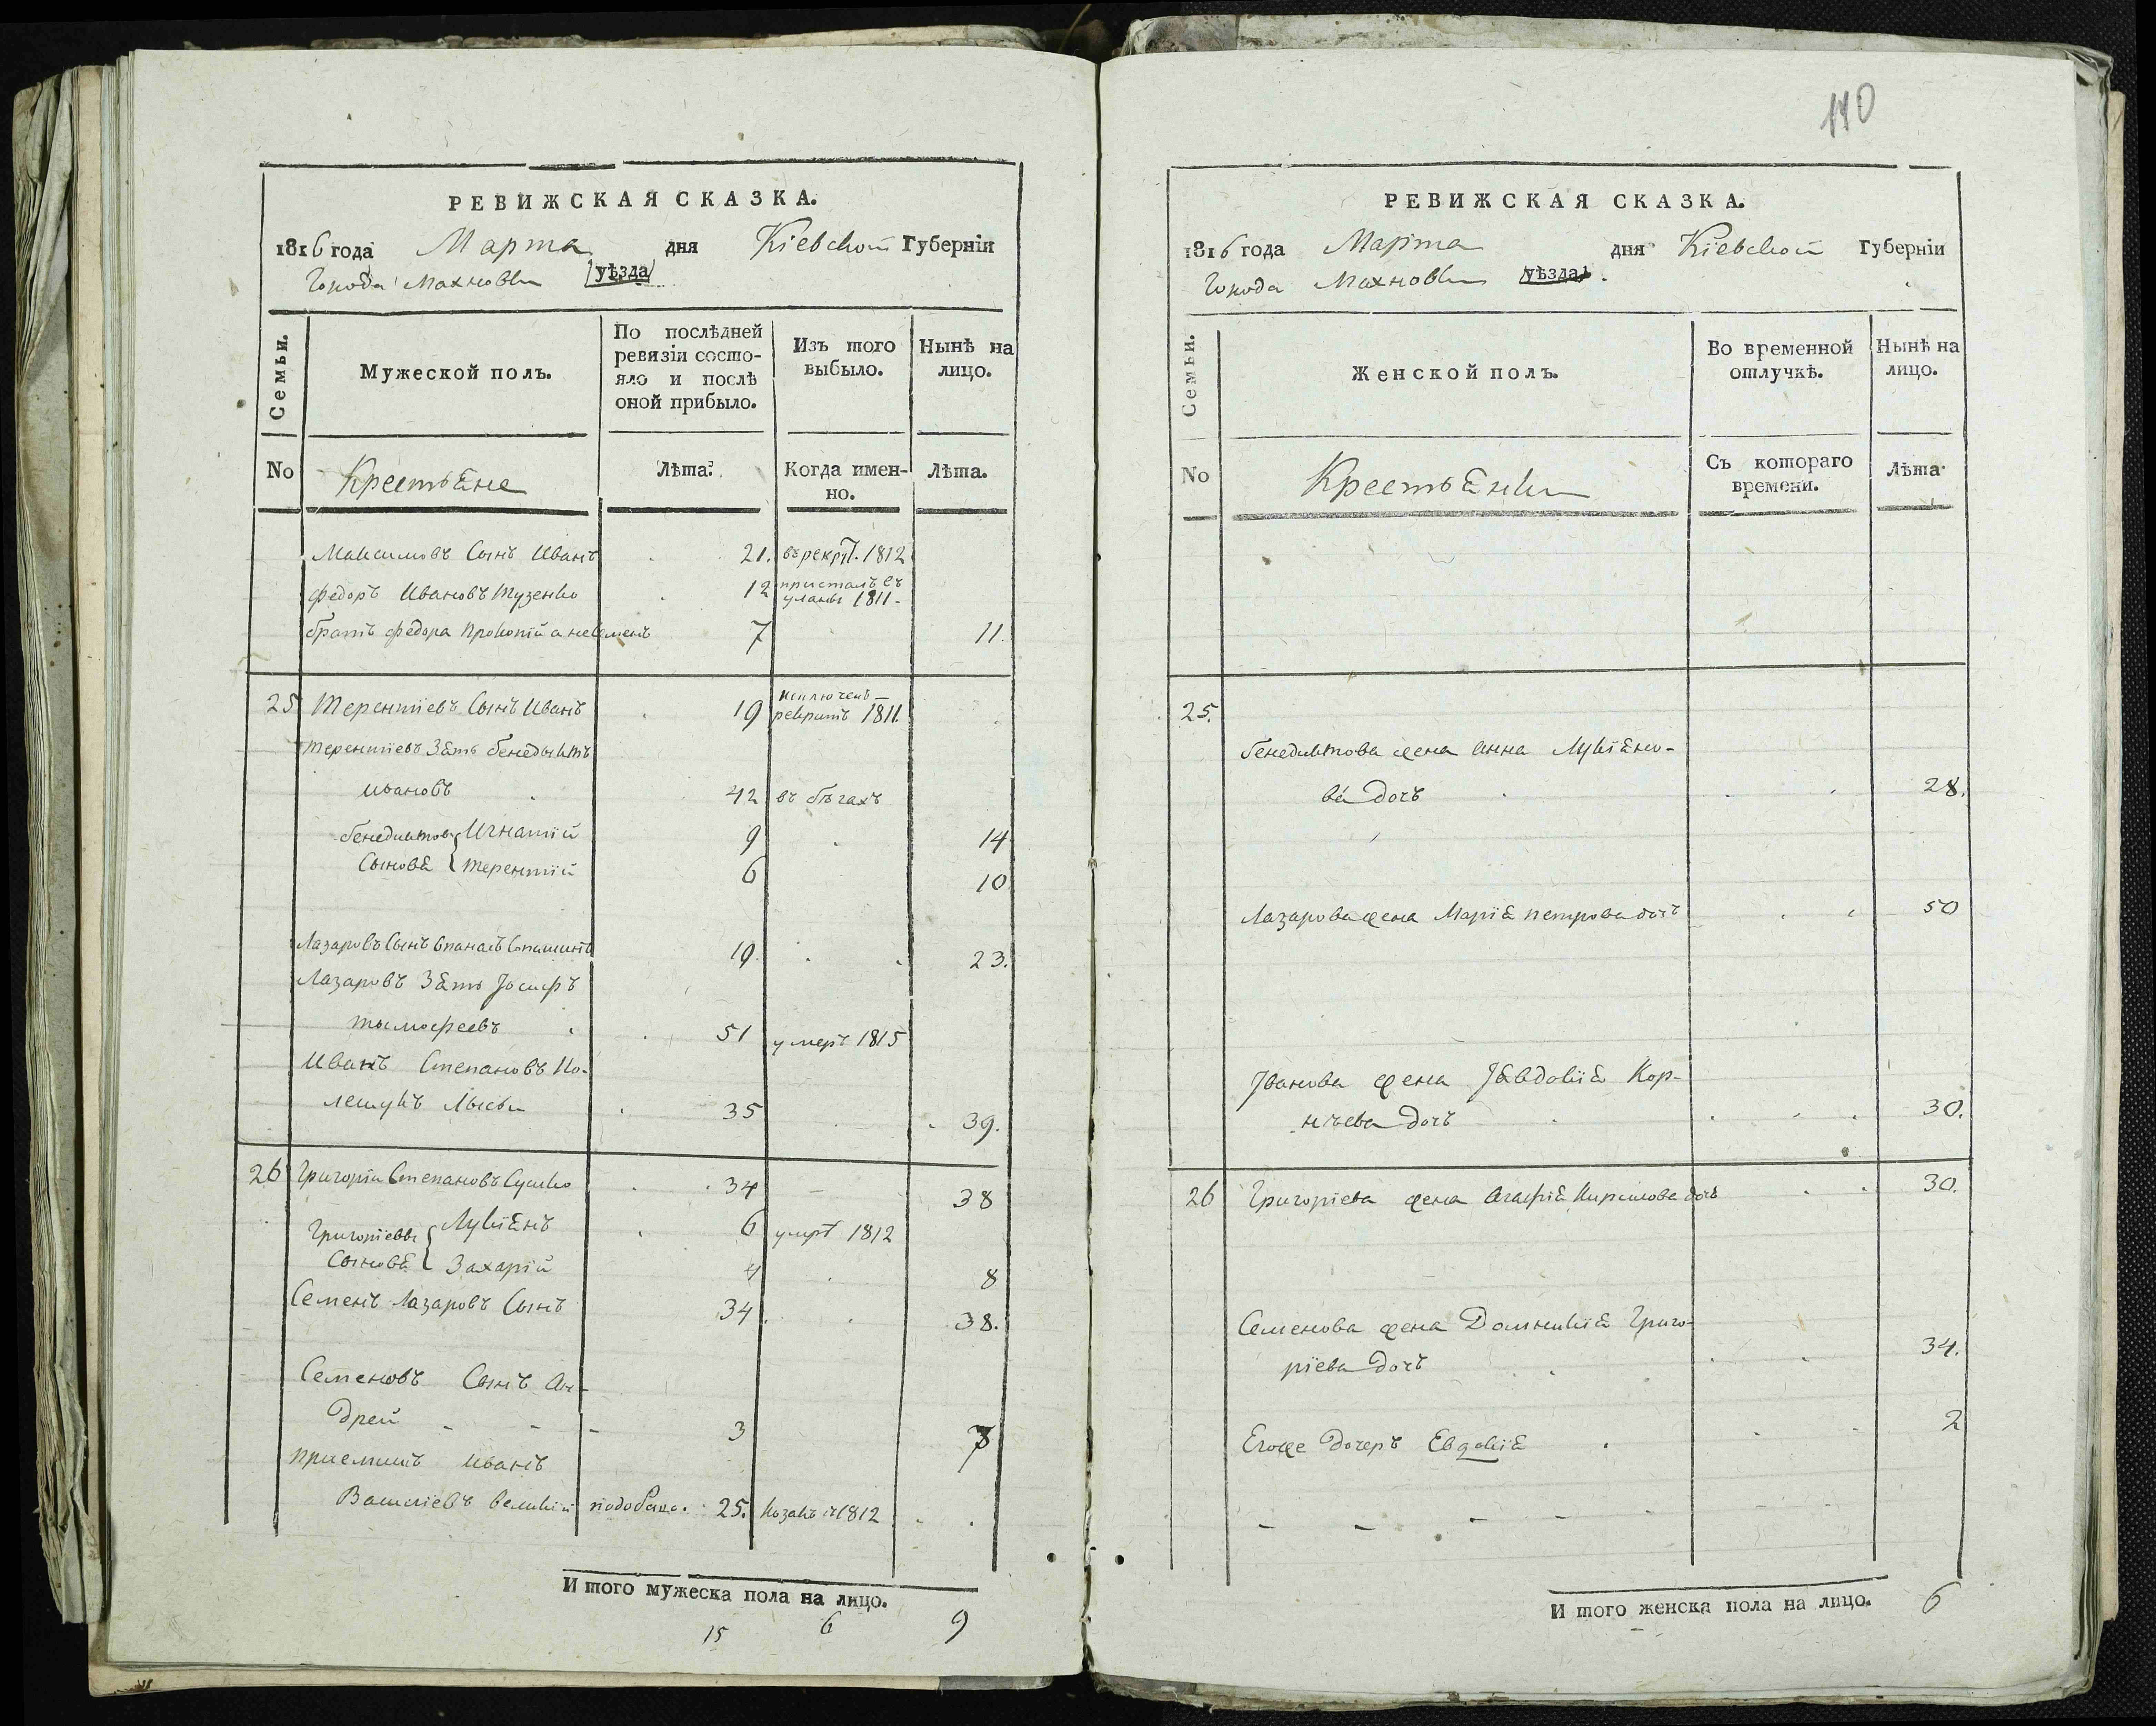 РЕВИЖСКАЯ СКАЗКА.
1816 года Марта дня Кіевской Губерніи
Города Махновки уѣзда
Семьи.
Мужеской полъ.
По послѣдней ревизіи состояло и послѣ оной прибыло.
Изъ того выбыло.
Нынѣ на лицо.
No Крестьяне Лѣта. Когда именно. Лѣта.
Максимовъ Сынъ Иванъ 21. въ рекрут. 1812
Федоръ Ивановъ Тузенко 12 присталъ въ уланы 1811
братъ федора Прокопій а не Семенъ 7 11.
25 Терентіевъ Сынъ Иванъ 19 исключенъ рекрутъ 1811.
Терентіевъ Зять бенедыктъ
Ивановъ 42 въ бѣгахъ
бенедиктовы Игнатій 9 14
Сыновя Терентій 6 10
Лазаровъ Сынъ Опанасъ 19 23.
Лазаровъ Зять Іосифъ
тымофеевъ 51 умеръ 1815
Иванъ Степановъ По-
лещукъ 35 39.
26 Григорій Степановъ Сушко 34 38
Григоріевы Лукіянъ 6 умре 1812
Сыновя Захарій 4 8
Семенъ Лазаровъ Сынъ 34. 38.
Семеновъ Сынъ Ан-
дрей 3 7
приемишъ Иванъ
Василіевъ великій 25. козакъ 1812
И того мужеска пола на лицо.
15 6 9
140
РЕВИЖСКАЯ СКАЗКА.
1816 года Марта дня Кіевской Губерніи
Города Махновки уѣзда
Семьи.
Женской полъ.
Во временной отлучкѣ.
Нынѣ на лицо.
No Крестьянки Съ котораго времени. Лѣта
25.
бенедиктова жена Анна Лукіяно-
ва дочъ 28.
Лазарова жена Марія петрова дочъ 50
Іванова жена Явдокія Кор-
нѣева дочъ 30.
26 Григоріева жена Агафія Кирилова дочъ 30.
Семенова жена Домникія Григо-
ріева дочъ 34.
Егоже дочеръ Евдокія 2
И того женска пола на лицо. 6